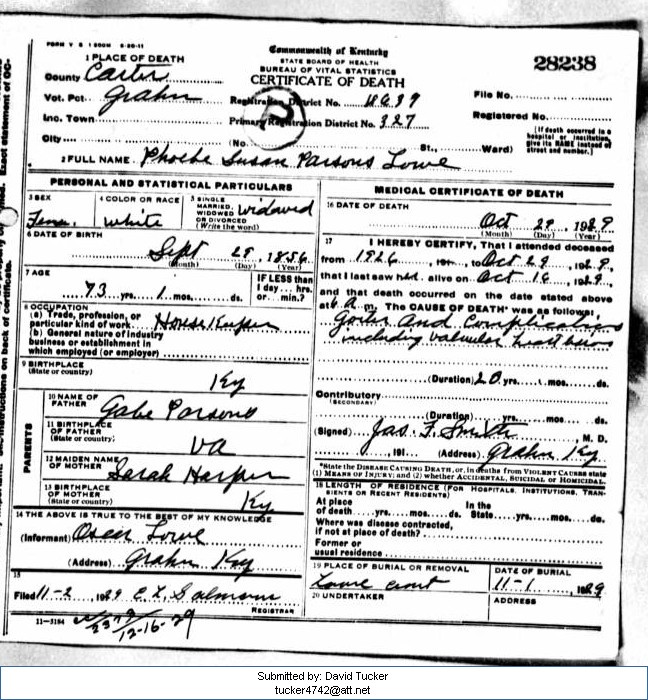 FORM V S 1 500M 5-20-11
Commonwealth of Kentucky
STATE BOARD OF HEALTH
BUREAU OF VITAL STATISTICS
CERTIFICATE OF DEATH
28238
1 PLACE OF DEATH
County Carter
Vot. Pct. Grahn
Registration District No.
File No.
Inc. Town
Primary Registration District No. 327
Registered No.
City
(No. St., Ward)
[If death occurred in a hospital or institution, give its NAME instead of street and number.]
2 FULL NAME Phoebe Susan Parsons Lowe
PERSONAL AND STATISTICAL PARTICULARS
3 SEX Fem.
4 COLOR OR RACE White
5 SINGLE MARRIED, WIDOWED OR DIVORCED (Write the word) Widowed
6 DATE OF BIRTH
Sept 29, 1856
(Month) (Day) (Year)
7 AGE
73 yrs. 1 mos. ds.
IF LESS than 1 day hrs. or min.?
8 OCCUPATION
(a) Trade, profession, or particular kind of work House Keeper
(b) General nature of industry
business or establishment in
which employed (or employer)
9 BIRTHPLACE
(State or country)
Ky
PARENTS
10 NAME OF FATHER Gabe Parsons
11 BIRTHPLACE OF FATHER (State or country) Va
12 MAIDEN NAME OF MOTHER Sarah Harper
13 BIRTHPLACE OF MOTHER (State or country) Ky
14 THE ABOVE IS TRUE TO THE BEST OF MY KNOWLEDGE
(Informant) Oscar Lowe
(Address) Grahn Ky
15
Filed 11-2, 1929
REGISTRAR
11-3184
12-16-29
MEDICAL CERTIFICATE OF DEATH
16 DATE OF DEATH
Oct 29, 1929
(Month) (Day) (Year)
17 I HEREBY CERTIFY, That I attended deceased
from 1926, 191 , to Oct 29, 1929,
that I last saw her alive on Oct 16, 1929,
and that death occurred on the date stated above
at 6 A. m. The CAUSE OF DEATH* was as follows;
Goiter And Complications
including valvular heart
(Duration) 20 yrs. mos. ds.
Contributory
(SECONDARY)
(Duration) yrs. mos. ds.
(Signed) Jas. F. Smith, M. D.
, 191 . (Address) Grahn Ky
*State the DISEASE CAUSING DEATH, or, in deaths from VIOLENT CAUSES state (1) MEANS OF INJURY; and (2) whether ACCIDENTAL, SUICIDAL or HOMICIDAL.
18 LENGTH OF RESIDENCE (FOR HOSPITALS, INSTITUTIONS, TRANSIENTS OR RECENT RESIDENTS)
At place of death yrs. mos. ds. In the State yrs. mos. ds.
Where was disease contracted,
if not at place of death?
Former or
usual residence
19 PLACE OF BURIAL OR REMOVAL
DATE OF BURIAL
11-1, 1929
20 UNDERTAKER
ADDRESS
Submitted by: David Tucker
tucker4742@att.net